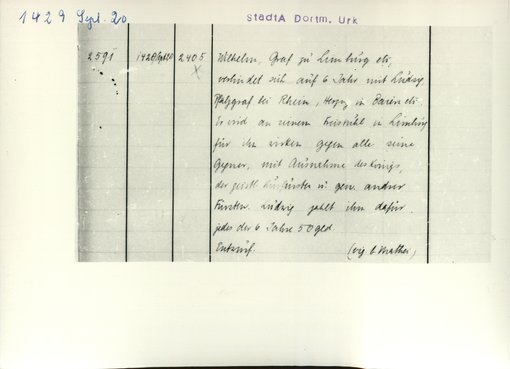 1429 Sept. 20
StadtA Dortm. Urk
2591 1429 Sept 20 2405
x
Wilhelm, Graf zu Limburg etc,
verbindet sich auf 6 Jahr mit Ludwig
Pfalzgraf bei Rhein, Herzog in Baiern etc.
Er wird an seinem Freistuhl in Limburg
für ihn wirken gegen alle seine
Gegner, mit Ausnahme des Königs,
der geistl. Kurfürsten u. gen. andrer
Fürsten. Ludwig zahlt ihm dafür
jedes der 6 Jahre 50 gld
Entwurf. (vig. b. Mathei)